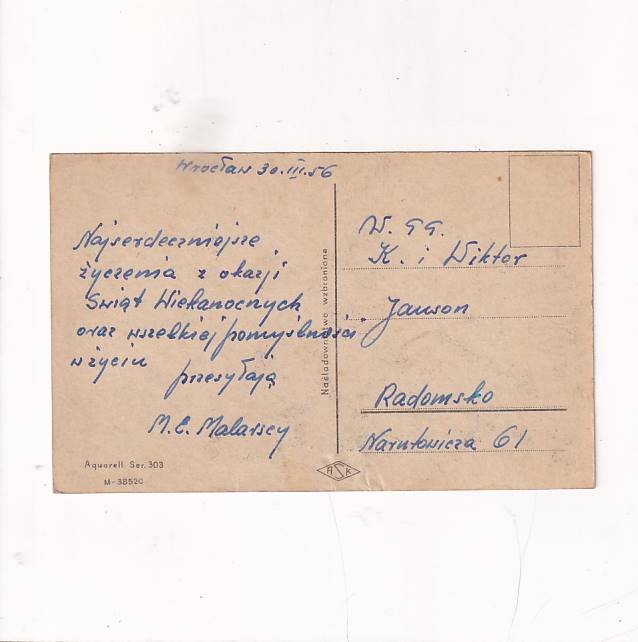 Wrocław 30.III.56
Najserdeczniejsze
życzenia z okazji
Świąt Wielkanocnych
oraz wszelkiej pomyślności
w życiu
przesyłają
M.E. Malarscy
Aquarell Ser. 303
M-38520
Naśladownictwo wzbronione
ASK
W. PP.
K. i Wiktor
Janson
Radomsko
Narutowicza 61